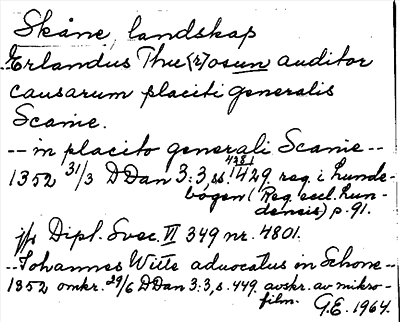 Skåne, landskap
--Erlandus Thue(r)osun auditor
causarum placiti generalis
Scanie.
--in placito generali Scanie--
1352 31/3 DDan 3:3, s. 429 reg. i Lunde-
bogen (Reg. eccl. Lun-
densis) p. 91.
jfr Dipl. Svec. III 349 nr. 4801.
--Johannes Witte advocatus in Schone--
1352 omkr. 29/6 DDan 3:3, s. 449, avskr. av mikro-
film.
G.E. 1964.